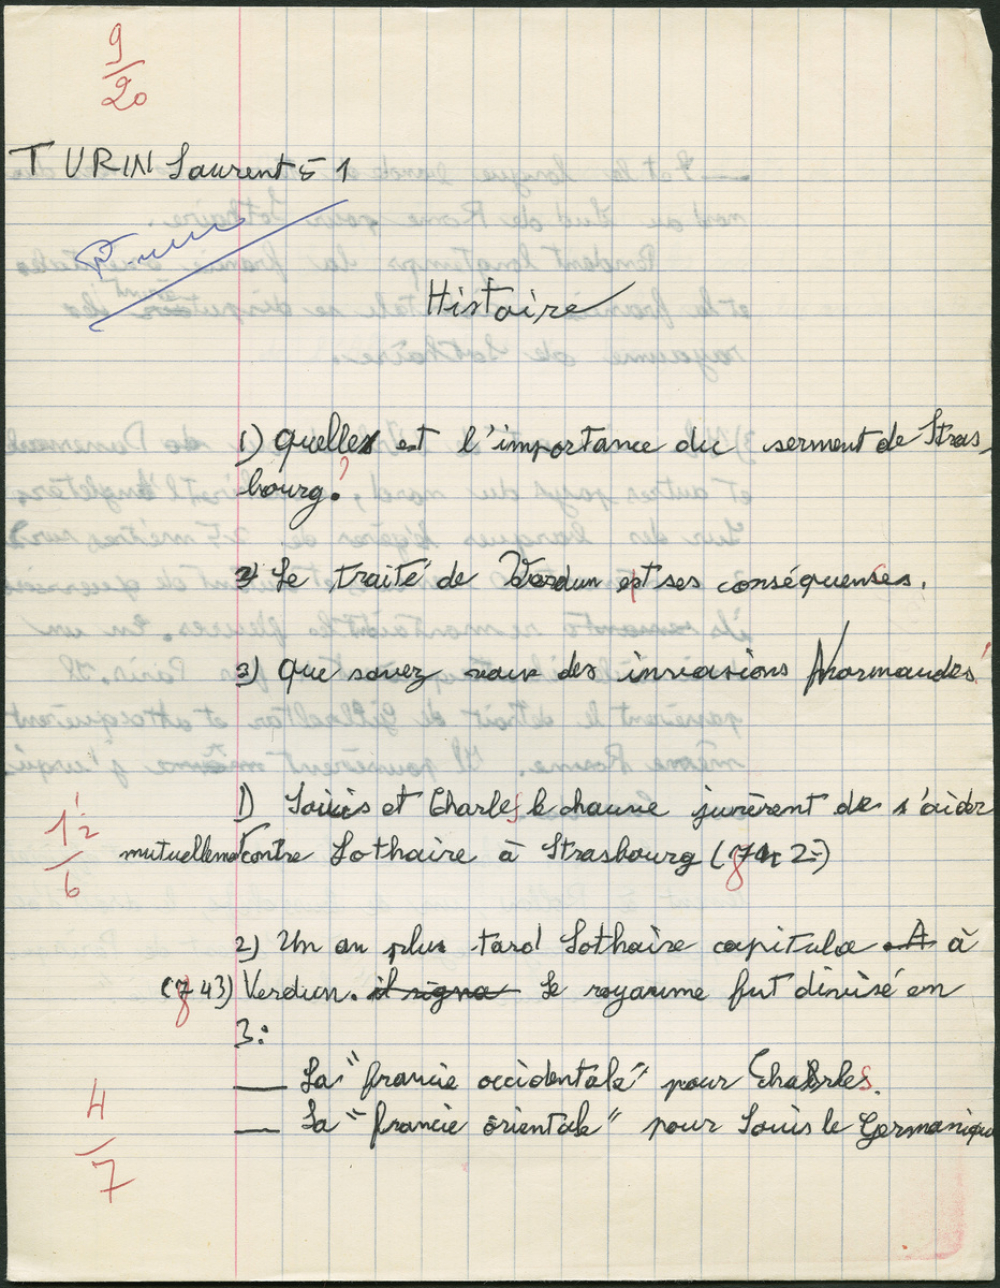 9
20
TURIN Laurent 5 1
Histoire
1) Quelles est l'importance du serment de Stras,
bourg.?
2) Le traité de Verdun et ses conséquenses.
3) Que savez vous des invasions Normandes!
1) Louis et Charles le chauve jurèrent de s'aider
mutuellemet contre Lothaire à Strasbourg (842)
1 1/2
6
2) Un an plus tard Lothaire capitula à
(843) Verdun. il signa Le royaume fut divisé en
3:
— La "francie occidentale" pour Charles.
— La "francie orientale" pour Louis le Germanique
4
7